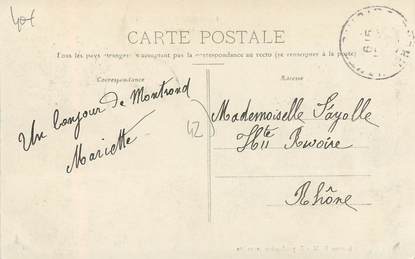 40€
CARTE POSTALE
Tous les pays étrangers n'acceptent pas la correspondance au recto (se renseigner à la poste)
Correspondance
Adresse
Un bonjour de Montrond
Mariette
42
Mademoiselle Sayolle
Hte Rivoire
Rhône